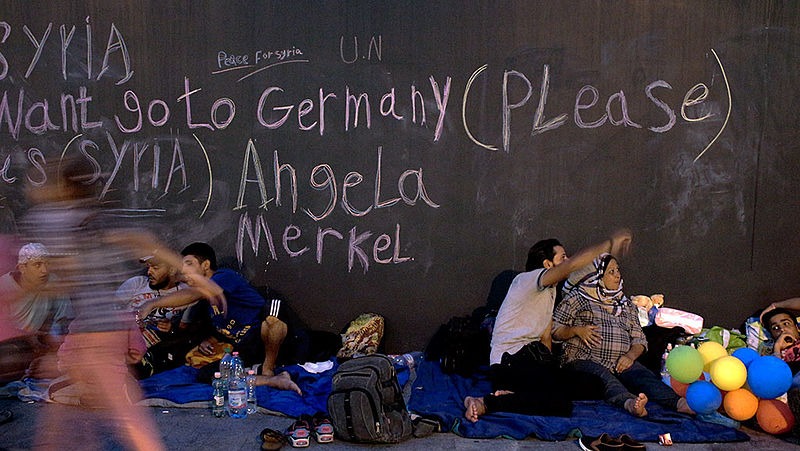 SYRIA
Peace For syria
U.N
Want go to Germany (Please)
us (SYRIA) Angela
Merkel.